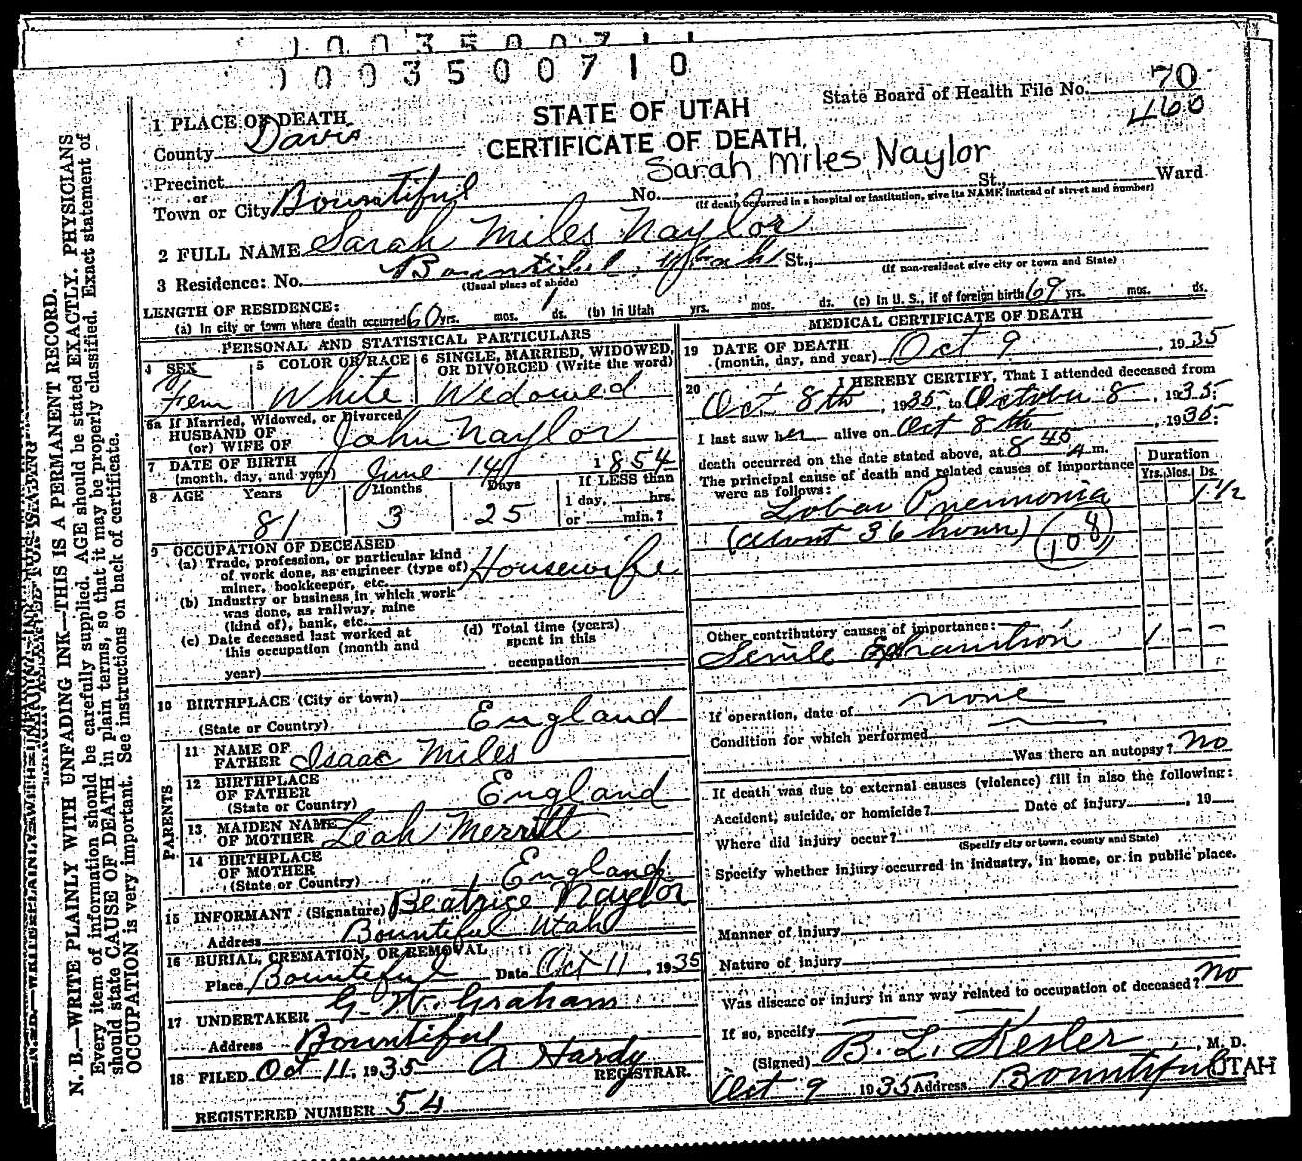 1003500711
1003500710
State Board of Health File No. 70
460
STATE OF UTAH
CERTIFICATE OF DEATH
1 PLACE OF DEATH
County Davis
Sarah Miles Naylor
Precinct
or
Town or City Bountiful No. St. Ward
(If death occurred in a hospital or institution, give its NAME instead of street and number)
2 FULL NAME Sarah Miles Naylor
3 Residence: No. Bountiful, Utah St.,
(Usual place of abode) (If non-resident give city or town and State)
LENGTH OF RESIDENCE:
(a) In city or town where death occurred 60 yrs. mos. 1 ds. (b) In Utah yrs. mos. ds. (c) In U. S., if of foreign birth 69 yrs. mos. ds.
PERSONAL AND STATISTICAL PARTICULARS
4 SEX Fem
5 COLOR OR RACE White
6 SINGLE, MARRIED, WIDOWED, OR DIVORCED (Write the word) Widowed
6a If Married, Widowed, or Divorced
HUSBAND OF
(or) WIFE OF John Naylor
7 DATE OF BIRTH
(month, day, and year) June 14 1854
8 AGE Years Months Days If LESS than
1 day, hrs.
81 3 25 or min.?
9 OCCUPATION OF DECEASED
(a) Trade, profession, or particular kind
of work done, as engineer (type of)
miner, bookkeeper, etc. Housewife
(b) Industry or business in which work
was done, as railway, mine
(kind of), bank, etc.
(c) Date deceased last worked at
this occupation (month and
year)
(d) Total time (years)
spent in this
occupation
10 BIRTHPLACE (City or town)
(State or Country) England
PARENTS
11 NAME OF
FATHER Isaac Miles
12 BIRTHPLACE
OF FATHER
(State or Country) England
13 MAIDEN NAME
OF MOTHER Leah Merritt
14 BIRTHPLACE
OF MOTHER
(State or Country) England
15 INFORMANT (Signature) Beatrice Naylor
Address Bountiful Utah
16 BURIAL, CREMATION, OR REMOVAL
Place Bountiful Date Oct 11, 1935
17 UNDERTAKER G. W. Graham
Address Bountiful
18 FILED Oct 11, 1935 A Hardy
REGISTRAR.
REGISTERED NUMBER 54
MEDICAL CERTIFICATE OF DEATH
19 DATE OF DEATH
(month, day, and year) Oct 9, 1935
20 I HEREBY CERTIFY, That I attended deceased from
Oct. 8th, 1935, to October 8, 1935.
I last saw her alive on Oct 8th, 1935
death occurred on the date stated above, at 8 45 A m.
The principal cause of death and related causes of importance
were as follows:
Duration
Yrs. Mos. Ds.
Lobar Pneumonia 1 1/2
(about 36 hours) (108)
Other contributory causes of importance:
Senile Exhaustion 1 - -
If operation, date of none
Condition for which performed
Was there an autopsy? no
If death was due to external causes (violence) fill in also the following:
Accident, suicide, or homicide? Date of injury , 19
Where did injury occur?
(Specify city or town, county and State)
Specify whether injury occurred in industry, in home, or in public place.
Manner of injury
Nature of injury
Was disease or injury in any way related to occupation of deceased? no
If so, specify
(Signed) B. L. Kesler, M. D.
Oct 9 1935 Address Bountiful UTAH
N. B.—WRITE PLAINLY WITH UNFADING INK—THIS IS A PERMANENT RECORD.
Every item of information should be carefully supplied. AGE should be stated EXACTLY. PHYSICIANS
should state CAUSE OF DEATH in plain terms, so that it may be properly classified. Exact statement of
OCCUPATION is very important. See instructions on back of certificate.